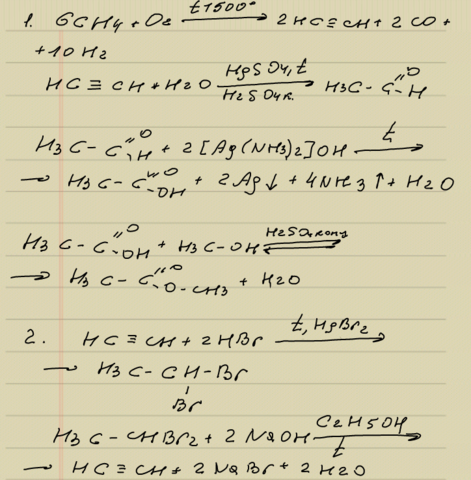 1. 6CH4 + O2 t1500° → 2HC≡CH + 2CO +
+ 10H2
HC≡CH + H2O HgSO4, t → H2SO4к. H3C-C=O-H
H3C-C=O-H + 2[Ag(NH3)2]OH t →
→ H3C-C=O-OH + 2Ag↓ + 4NH3↑ + H2O
H3C-C=O-OH + H3C-OH H2SO4конц ⇌
→ H3C-C=O-O-CH3 + H2O
2. HC≡CH + 2HBr t, HgBr2 →
→ H3C-CH-Br
Br
H3C-CHBr2 + 2NaOH C2H5OH → t
→ HC≡CH + 2NaBr + 2H2O